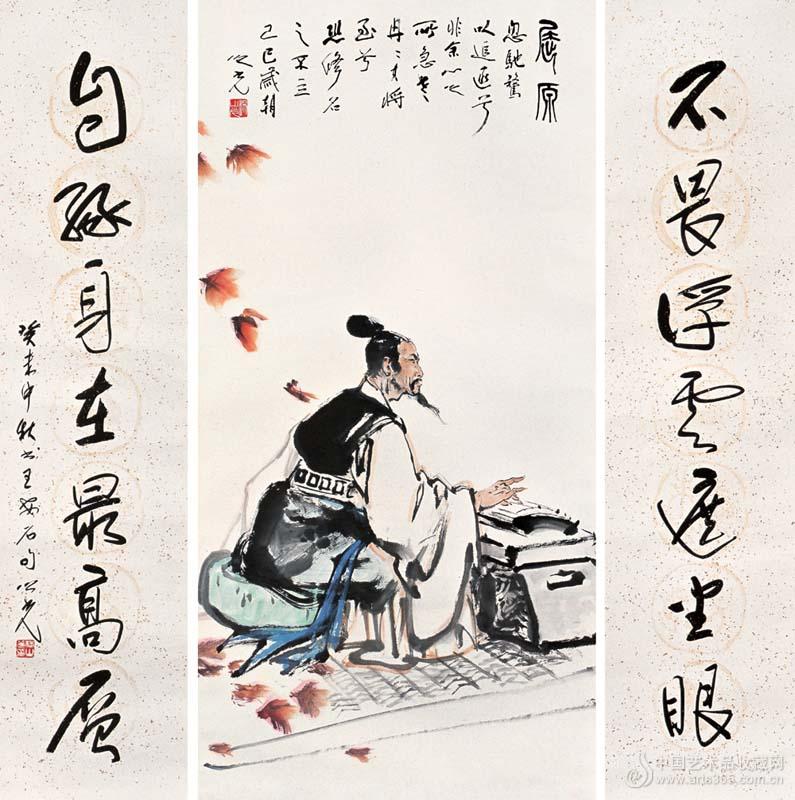 不畏浮雲遮望眼
屈原
忽馳騖
以追逐兮
非余心之
所急老
冉冉其將
至兮
恐修名
之不立
己巳歲朝
之光
自緣身在最高層
癸未中秋書王安石句之光
中国艺术品收藏网
www.arts365.com.cn